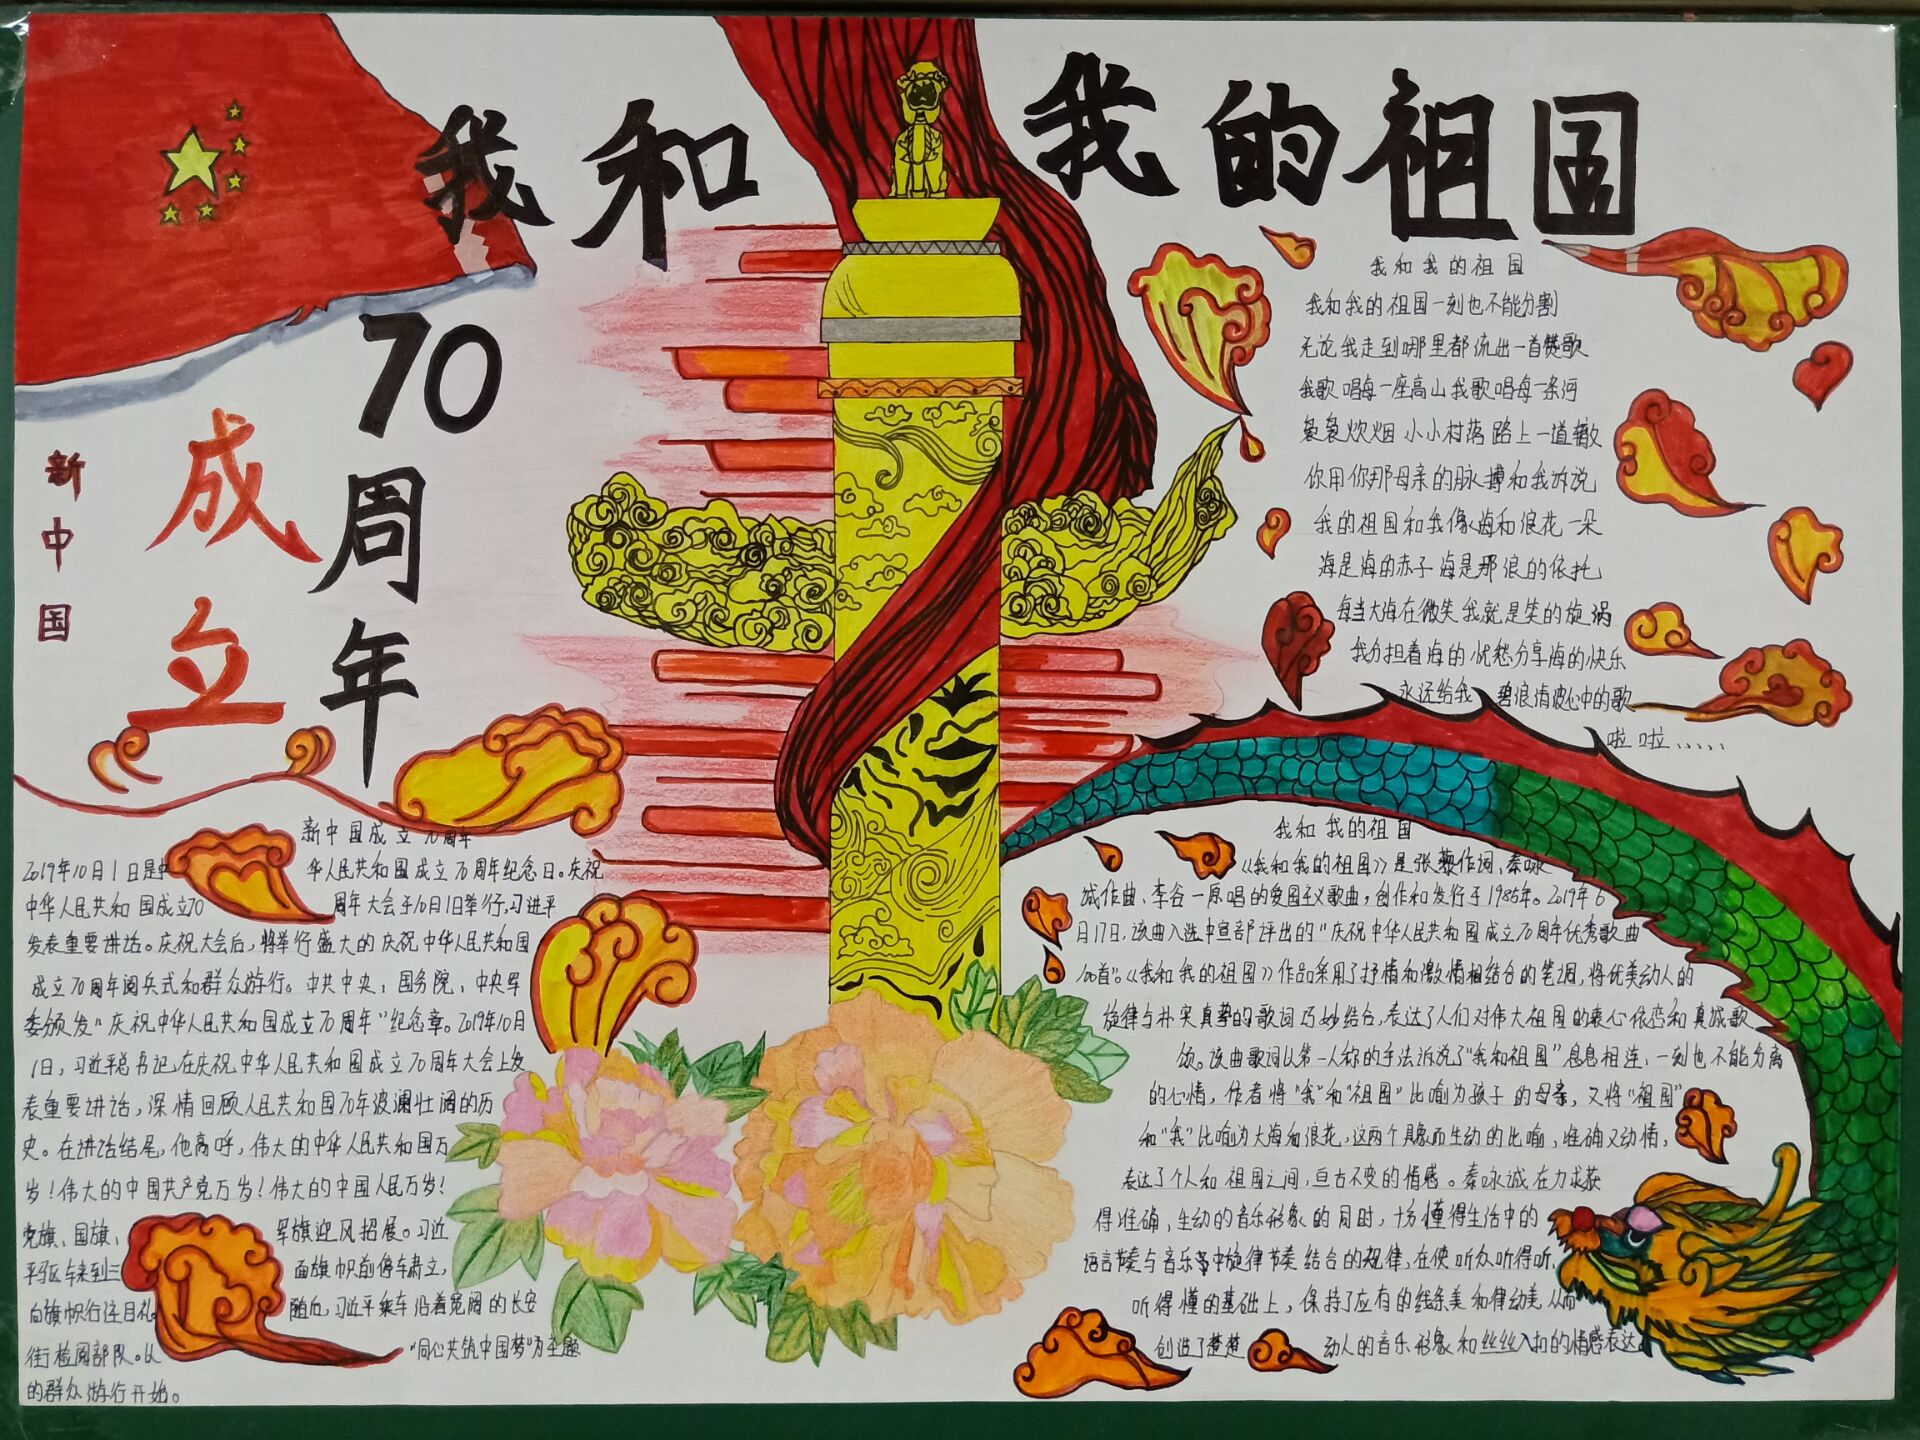 我和我的祖国
新中国
成立
70周年
我和我的祖国
我和我的祖国一刻也不能分割
无论我走到哪里都流出一首赞歌
我歌唱每一座高山我歌唱每一条河
袅袅炊烟 小小村落 路上一道辙
你用你那母亲的脉搏和我诉说
我的祖国和我像海和浪花一朵
海是海的赤子海是那浪的依托
每当大海在微笑我就是笑的旋涡
我分担着海的忧愁分享海的快乐
永远给我 碧浪清波心中的歌
啦啦、、、、、
新中国成立70周年
2019年10月1日是中 华人民共和国成立70周年纪念日。庆祝
中华人民共和国成立70 周年大会于10月1日举行,习进平
发表重要讲话。庆祝大会后,将举行盛大的庆祝中华人民共和国
成立70周年阅兵式和群众游行。中共中央、国务院、中央军
委颁发"庆祝中华人民共和国成立70周年"纪念章。2019年10月
1日,习近平总书记在庆祝中华人民共和国成立70周年大会上发
表重要讲话,深情回顾人民共和国70年波澜壮阔的历
史。在讲话结尾,他高呼,伟大的中华人民共和国万
岁!伟大的中国共产党万岁!伟大的中国人民万岁!
党旗、国旗、 军旗迎风招展。习近
平驱车来到三 面旗帜前停车肃立,
向旗帜行注目礼。 随后,习近平乘车沿着宽阔的长安
街检阅部队。以 "同心共筑中国梦"为主题
的群众游行开始。
我和我的祖国
《我和我的祖国》是张藜作词,秦咏
诚作曲、李谷一原唱的爱国主义歌曲,创作和发行于1985年。2019年6
月17日,该曲入选中宣部评出的"庆祝中华人民共和国成立70周年优秀歌曲
100首"。《我和我的祖国》作品采用了抒情和激情相结合的笔调,将优美动人的
旋律与朴实真挚的歌词巧妙结合,表达了人们对伟大祖国的衷心依恋和真诚歌
颂。该曲歌词以第一人称的手法诉说了"我和祖国"息息相连,一刻也不能分离
的心情,作者将"我"和"祖国"比喻为孩子的母亲,又将"祖国"
和"我"比喻为大海和浪花,这两个具象而生动的比喻,准确又动情,
表达了个人和祖国之间,亘古不变的情感。秦咏诚在力求获
得准确,生动的音乐形象的同时,十分懂得生活中的
语言节奏与音乐中旋律节奏结合的规律,在使听众听得听,
听得懂的基础上,保持了应有的线条美和律动美从而
创造了楚楚 动人的音乐形象和丝丝入扣的情感表达。